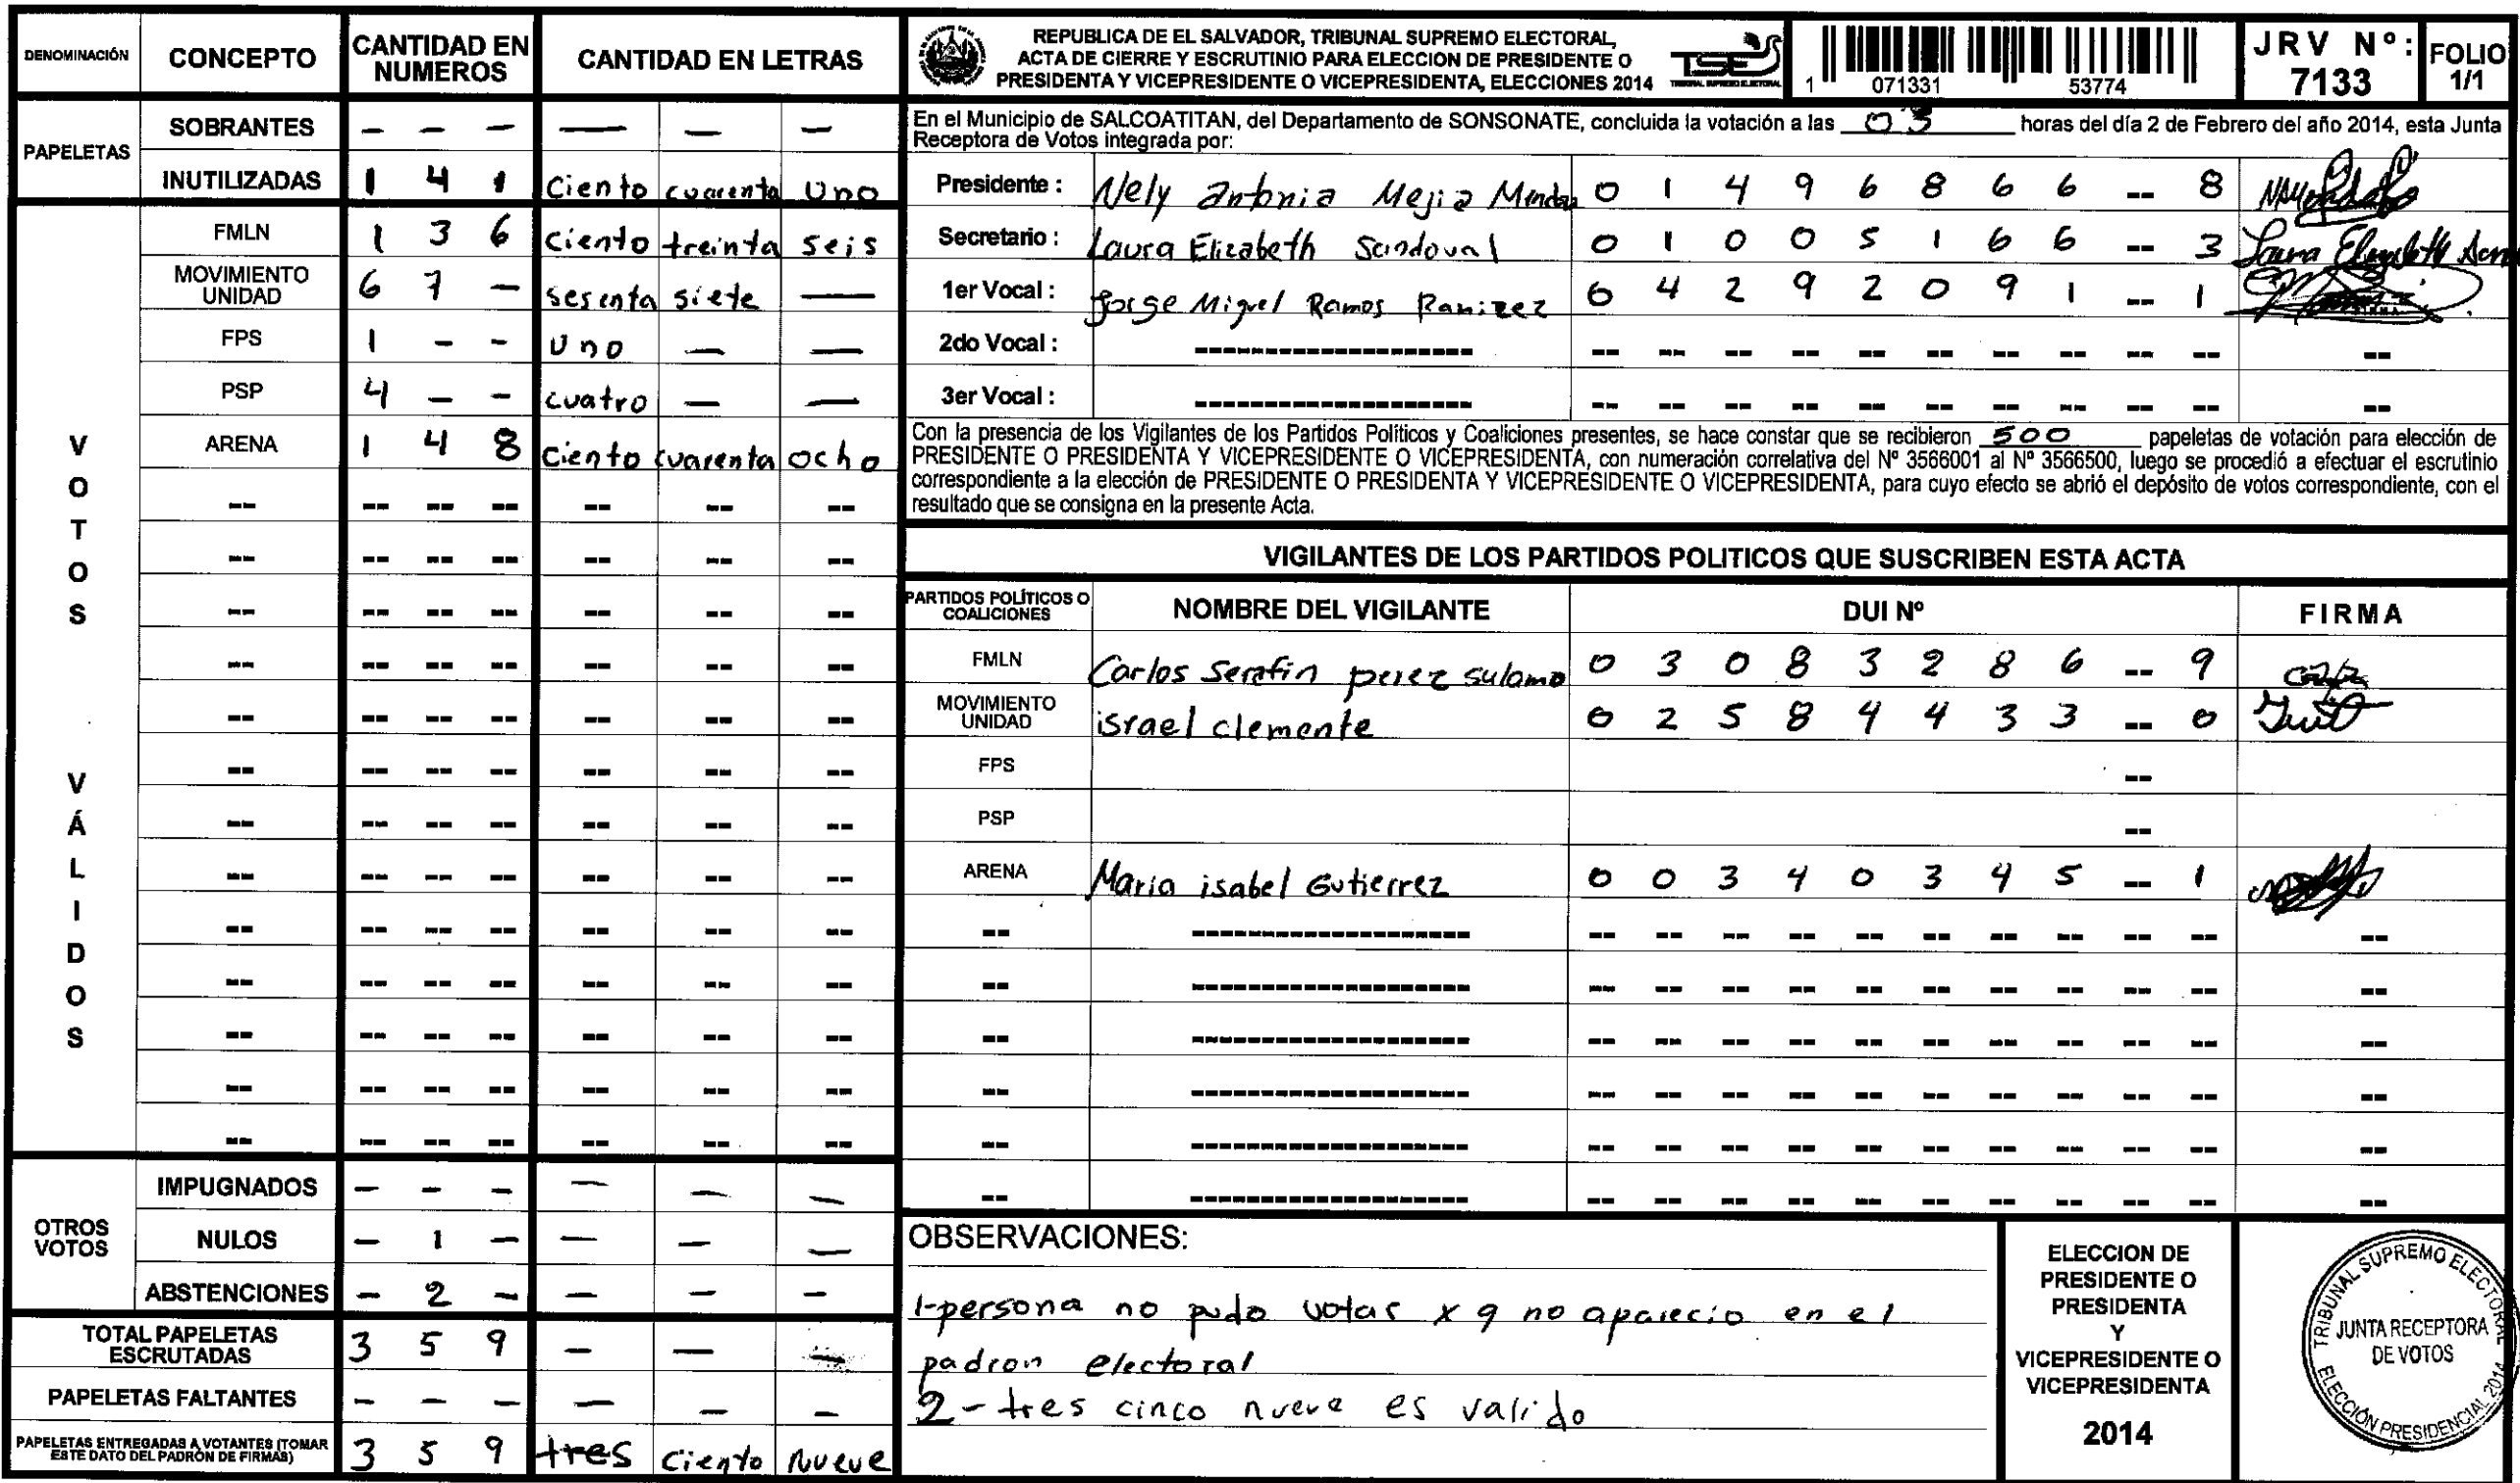 DENOMINACIÓN CONCEPTO CANTIDAD EN NUMEROS CANTIDAD EN LETRAS
PAPELETAS
SOBRANTES — — — — — —
INUTILIZADAS 1 4 1 Ciento cuarenta Uno
VOTOS VÁLIDOS
FMLN 1 3 6 ciento treinta seis
MOVIMIENTO UNIDAD 6 7 — sesenta siete —
FPS 1 - - Uno — —
PSP 4 — - cuatro — —
ARENA 1 4 8 Ciento cuarenta ocho
-- -- -- -- -- -- --
-- -- -- -- -- -- --
-- -- -- -- -- -- --
-- -- -- -- -- -- --
-- -- -- -- -- -- --
-- -- -- -- -- -- --
-- -- -- -- -- -- --
-- -- -- -- -- -- --
-- -- -- -- -- -- --
-- -- -- -- -- -- --
-- -- -- -- -- -- --
-- -- -- -- -- -- --
-- -- -- -- -- -- --
OTROS VOTOS
IMPUGNADOS — - — — — —
NULOS — 1 — — — —
ABSTENCIONES — 2 — — — —
TOTAL PAPELETAS ESCRUTADAS 3 5 9 — — —
PAPELETAS FALTANTES — — — — — —
PAPELETAS ENTREGADAS A VOTANTES (TOMAR ESTE DATO DEL PADRÓN DE FIRMAS) 3 5 9 tres ciento Nueve
REPUBLICA DE EL SALVADOR, TRIBUNAL SUPREMO ELECTORAL,
ACTA DE CIERRE Y ESCRUTINIO PARA ELECCION DE PRESIDENTE O
PRESIDENTA Y VICEPRESIDENTE O VICEPRESIDENTA, ELECCIONES 2014
TSE
TRIBUNAL SUPREMO ELECTORAL
1 071331 53774
JRV Nº: 7133
FOLIO 1/1
En el Municipio de SALCOATITAN, del Departamento de SONSONATE, concluida la votación a las 05 horas del día 2 de Febrero del año 2014, esta Junta
Receptora de Votos integrada por:
Presidente : Nely Antonia Mejia 0 1 4 9 6 8 6 6 -- 8
Secretario : Laura Elizabeth Sandoval 0 1 0 0 5 1 6 6 -- 3 Laura Elizabeth
1er Vocal : Jorge Miguel Ramos Ramirez 0 4 2 9 2 0 9 1 -- 1
2do Vocal : ------------------ -- -- -- -- -- -- -- -- -- -- --
3er Vocal : ------------------ -- -- -- -- -- -- -- -- -- -- --
Con la presencia de los Vigilantes de los Partidos Políticos y Coaliciones presentes, se hace constar que se recibieron 500 papeletas de votación para elección de
PRESIDENTE O PRESIDENTA Y VICEPRESIDENTE O VICEPRESIDENTA, con numeración correlativa del Nº 3566001 al Nº 3566500, luego se procedió a efectuar el escrutinio
correspondiente a la elección de PRESIDENTE O PRESIDENTA Y VICEPRESIDENTE O VICEPRESIDENTA, para cuyo efecto se abrió el depósito de votos correspondiente, con el
resultado que se consigna en la presente Acta.
VIGILANTES DE LOS PARTIDOS POLITICOS QUE SUSCRIBEN ESTA ACTA
PARTIDOS POLÍTICOS O COALICIONES NOMBRE DEL VIGILANTE DUI Nº FIRMA
FMLN Carlos Serafin perez sulamo 0 3 0 8 3 2 8 6 -- 9
MOVIMIENTO UNIDAD israel clemente 0 2 5 8 4 4 3 3 -- 0
FPS --
PSP --
ARENA Maria isabel Gutierrez 0 0 3 4 0 3 4 5 -- 1
-- ------------------ -- -- -- -- -- -- -- -- -- -- --
-- ------------------ -- -- -- -- -- -- -- -- -- -- --
-- ------------------ -- -- -- -- -- -- -- -- -- -- --
-- ------------------ -- -- -- -- -- -- -- -- -- -- --
-- ------------------ -- -- -- -- -- -- -- -- -- -- --
-- ------------------ -- -- -- -- -- -- -- -- -- -- --
OBSERVACIONES:
1-persona no pudo votar x q no aparecio en el
padron electoral
2 - tres cinco nueve es valido
ELECCION DE
PRESIDENTE O
PRESIDENTA
Y
VICEPRESIDENTE O
VICEPRESIDENTA
2014
TRIBUNAL SUPREMO ELECTORAL
JUNTA RECEPTORA
DE VOTOS
ELECCIÓN PRESIDENCIAL 2014